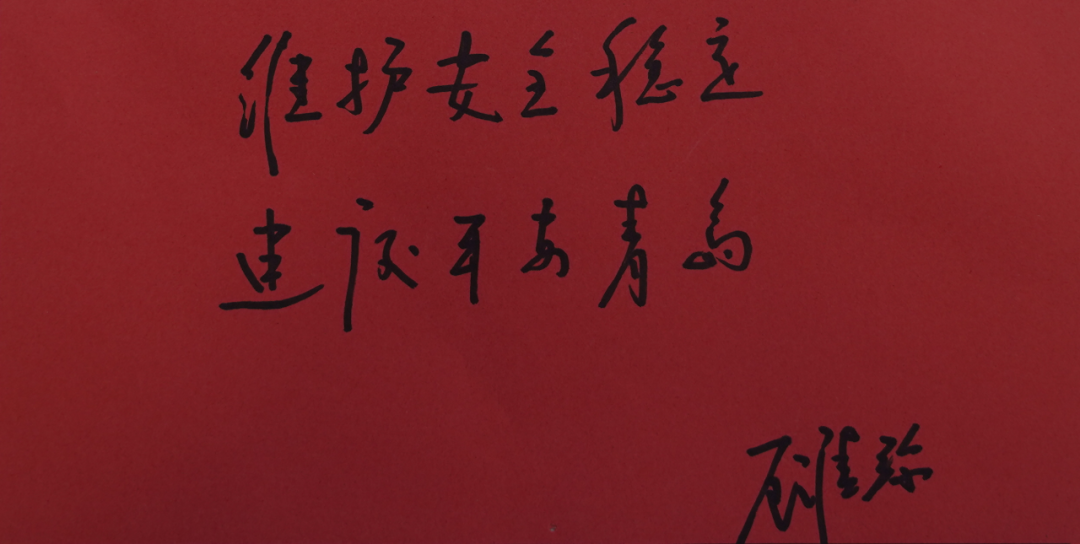 维护安全稳定
建设平安青岛